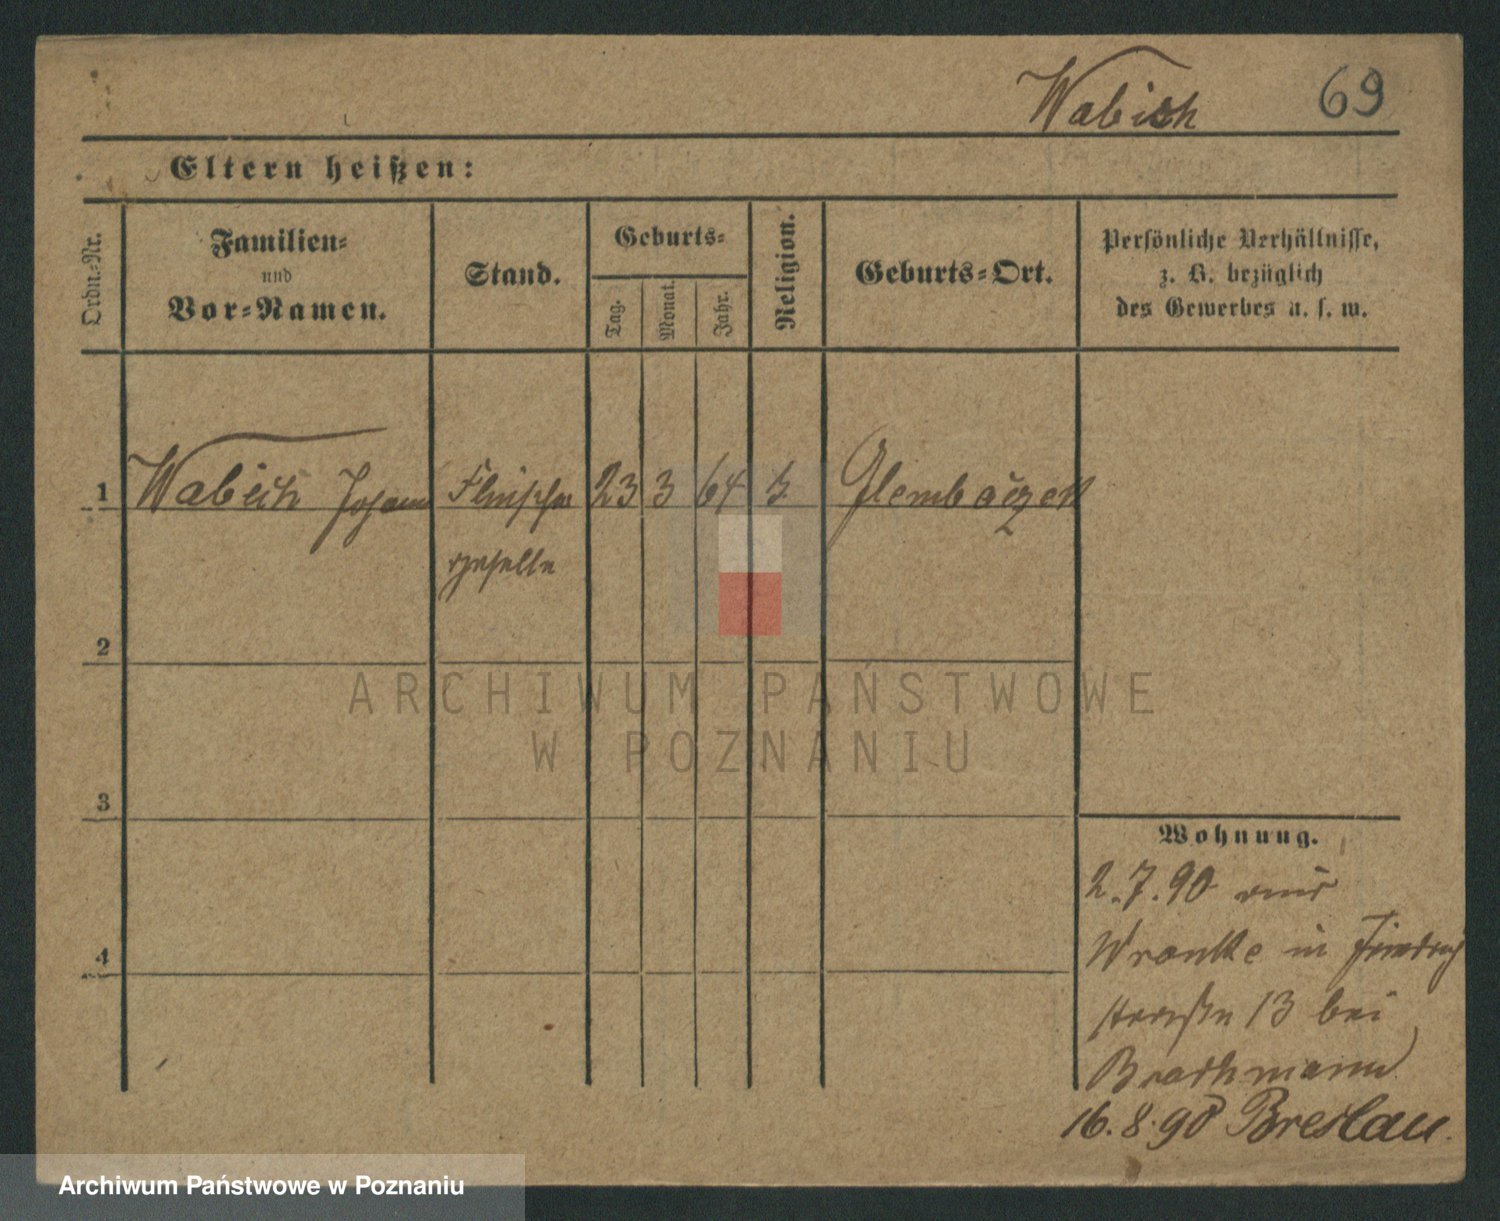 Wabich 69
Eltern heißen:
Ordn.-Nr.
Familien-
und
Vor-Namen.
Stand.
Geburts-
Tag.
Monat.
Jahr.
Religion.
Geburts-Ort.
Persönliche Verhältnisse,
z. B. bezüglich
des Gewerbes u. s. w.
1 Wabich Johann Fleischer 23 3 64 k.
geselle
2
3
4
Wohnung.
2.7.90 aus
Wronke in Friedrich
straße 13 bei
Brachmann
16.8.90 Breslau.
ARCHIWUM PAŃSTWOWE
W POZNANIU
Archiwum Państwowe w Poznaniu